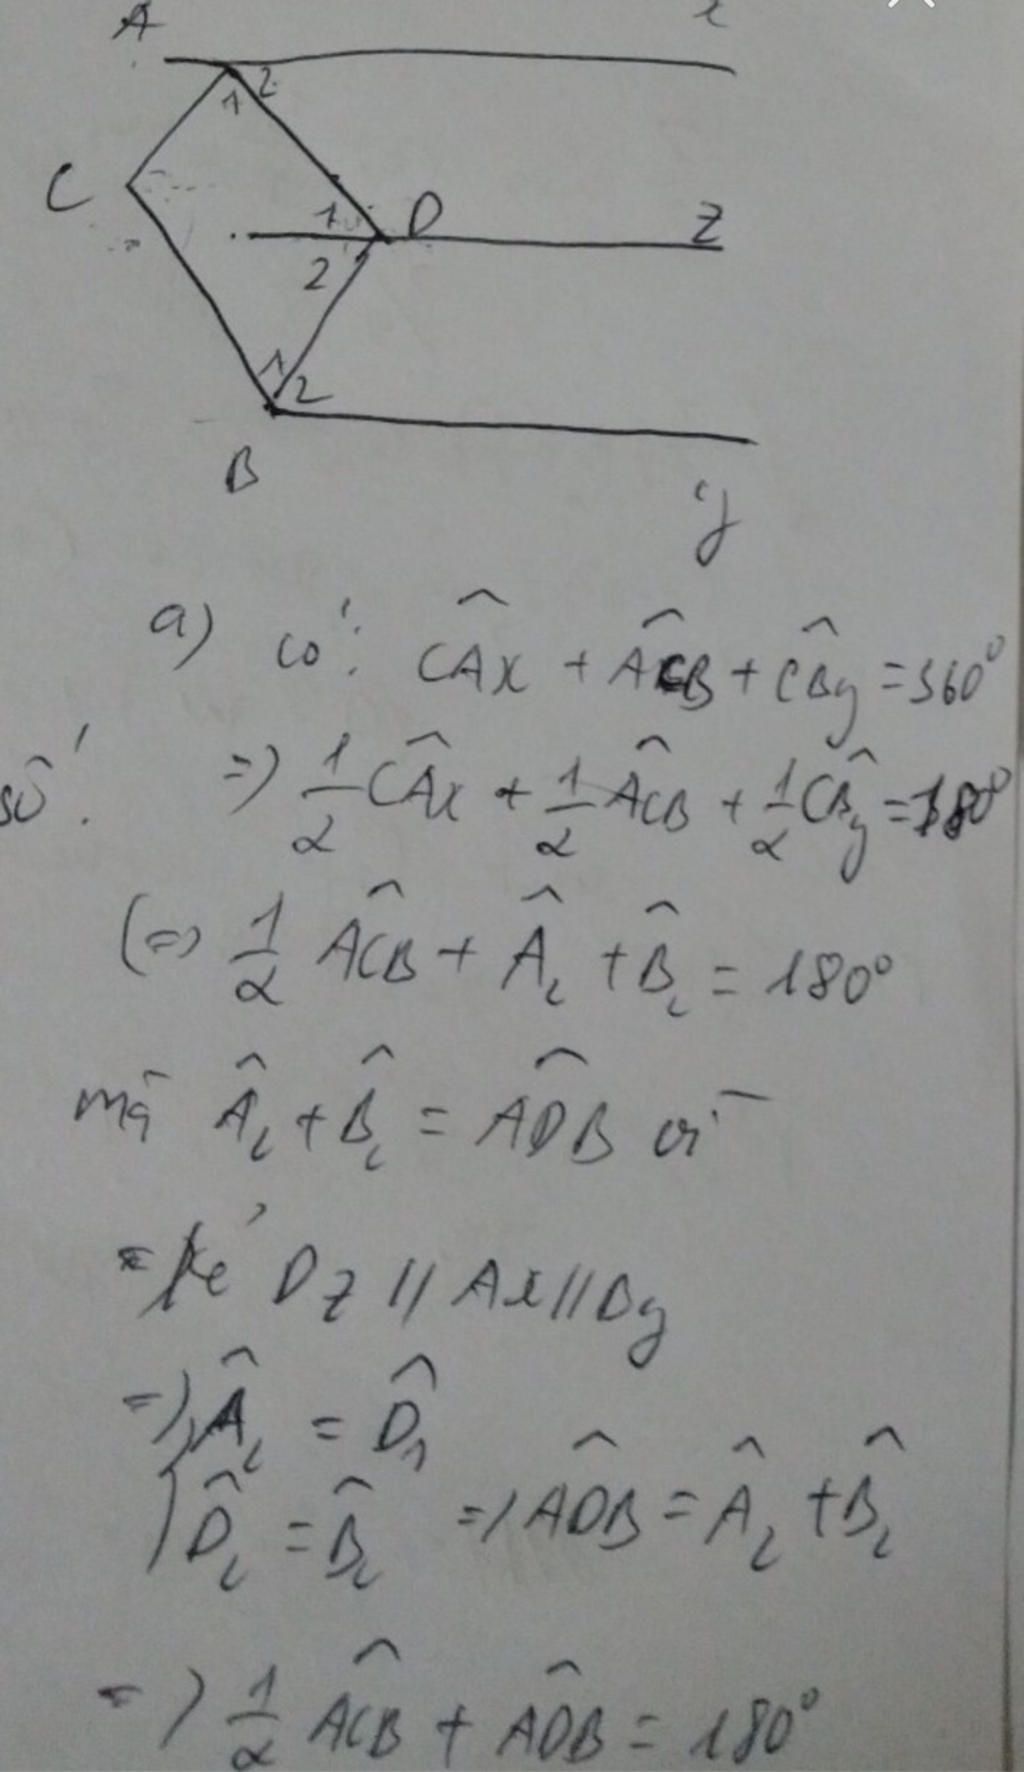 A x
1 2
C
1 D z
2
1 2
B
y
a) có: CAx + ACB + CBy = 360°
số!
=> 1/2 CAx + 1/2 ACB + 1/2 CBy = 180°
(=) 1/2 ACB + A2 + B2 = 180°
mà A2 + B2 = ADB vì
kẻ Dz // Ax // By
=> A2 = D1
D2 = B2 => ADB = A2 + B2
=> 1/2 ACB + ADB = 180°